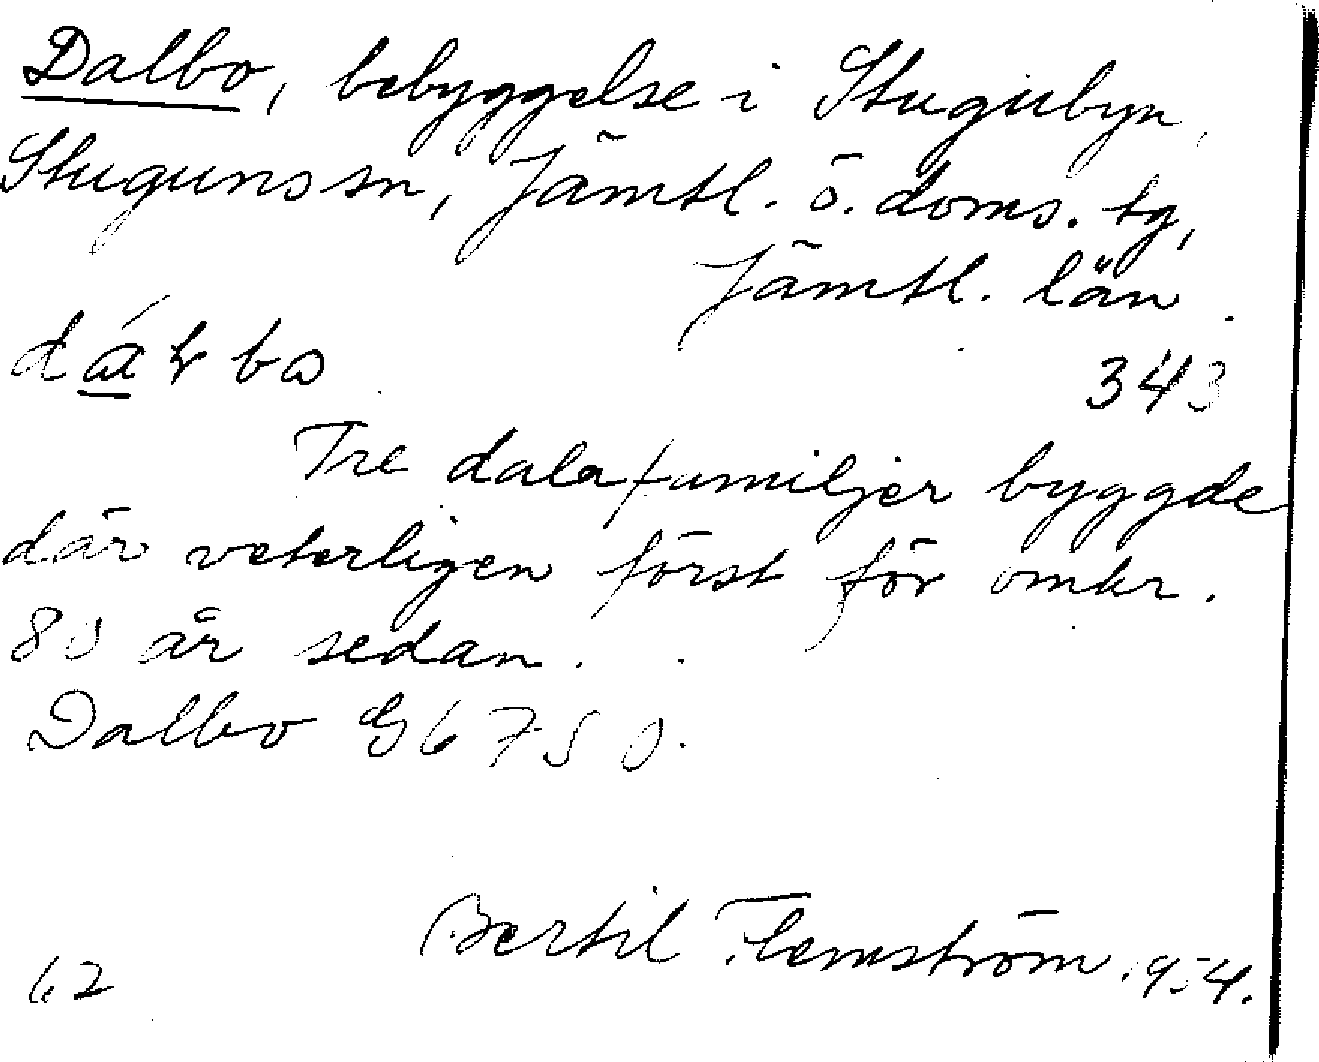 Dalbo, bebyggelse i Stugubyn,
Stuguns sn, Jämtl. ö. doms. tg,
Jämtl. län.
343
Tre dalafamiljer byggde
där veterligen först för omkr.
80 år sedan.
Dalbo G6750.
Bertil Flemström 1954.
62